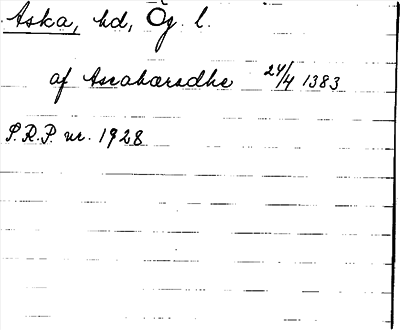 Aska, hd, Ög. l.
af Ascahæradhe 24/4 1383
S.R.P. nr. 1928